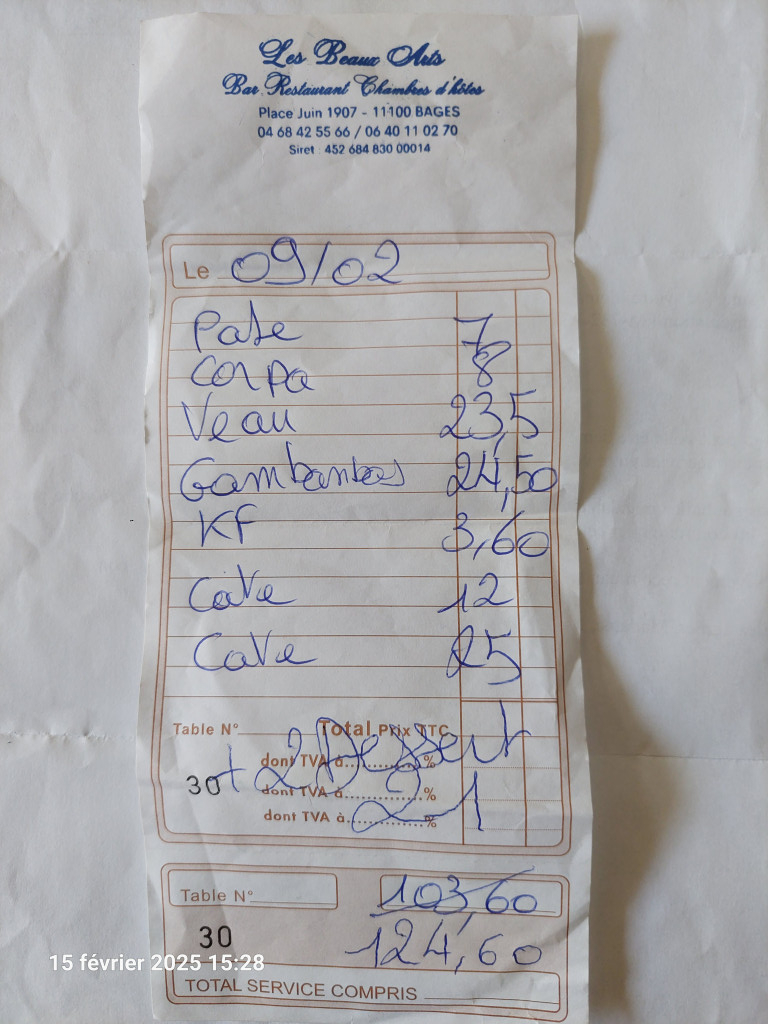 Les Beaux Arts
Bar Restaurant Chambres d'hôtes
Place Juin 1907 - 11100 BAGES
04 68 42 55 66 / 06 40 11 02 70
Siret : 452 684 830 00014
Le 09/02
Pate 7
Corpa 8
Veau 23,5
Gambanbas 24,50
KF 3,60
Cave 12
Cave 25
Table N° Total Prix TTC
+ 2 Dessert
dont TVA à..........%
30 dont TVA à..........%
21
dont TVA à..........%
Table N° 103,60
30 124,60
15 février 2025 15:28
TOTAL SERVICE COMPRIS